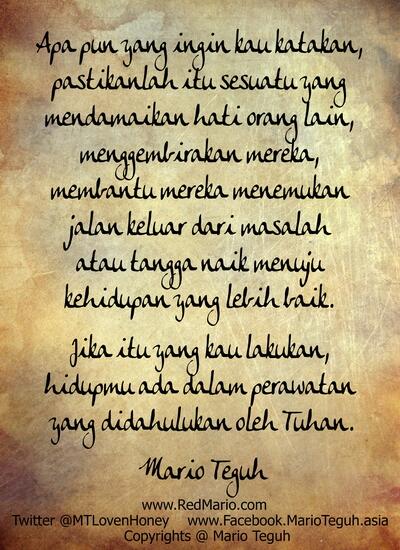 Apa pun yang ingin kau katakan,
pastikanlah itu sesuatu yang
mendamaikan hati orang lain,
menggembirakan mereka,
membantu mereka menemukan
jalan keluar dari masalah
atau tangga naik menuju
kehidupan yang lebih baik.
Jika itu yang kau lakukan,
hidupmu ada dalam perawatan
yang didahulukan oleh Tuhan.
Mario Teguh
www.RedMario.com
Twitter @MTLovenHoney www.Facebook.MarioTeguh.asia
Copyrights @ Mario Teguh